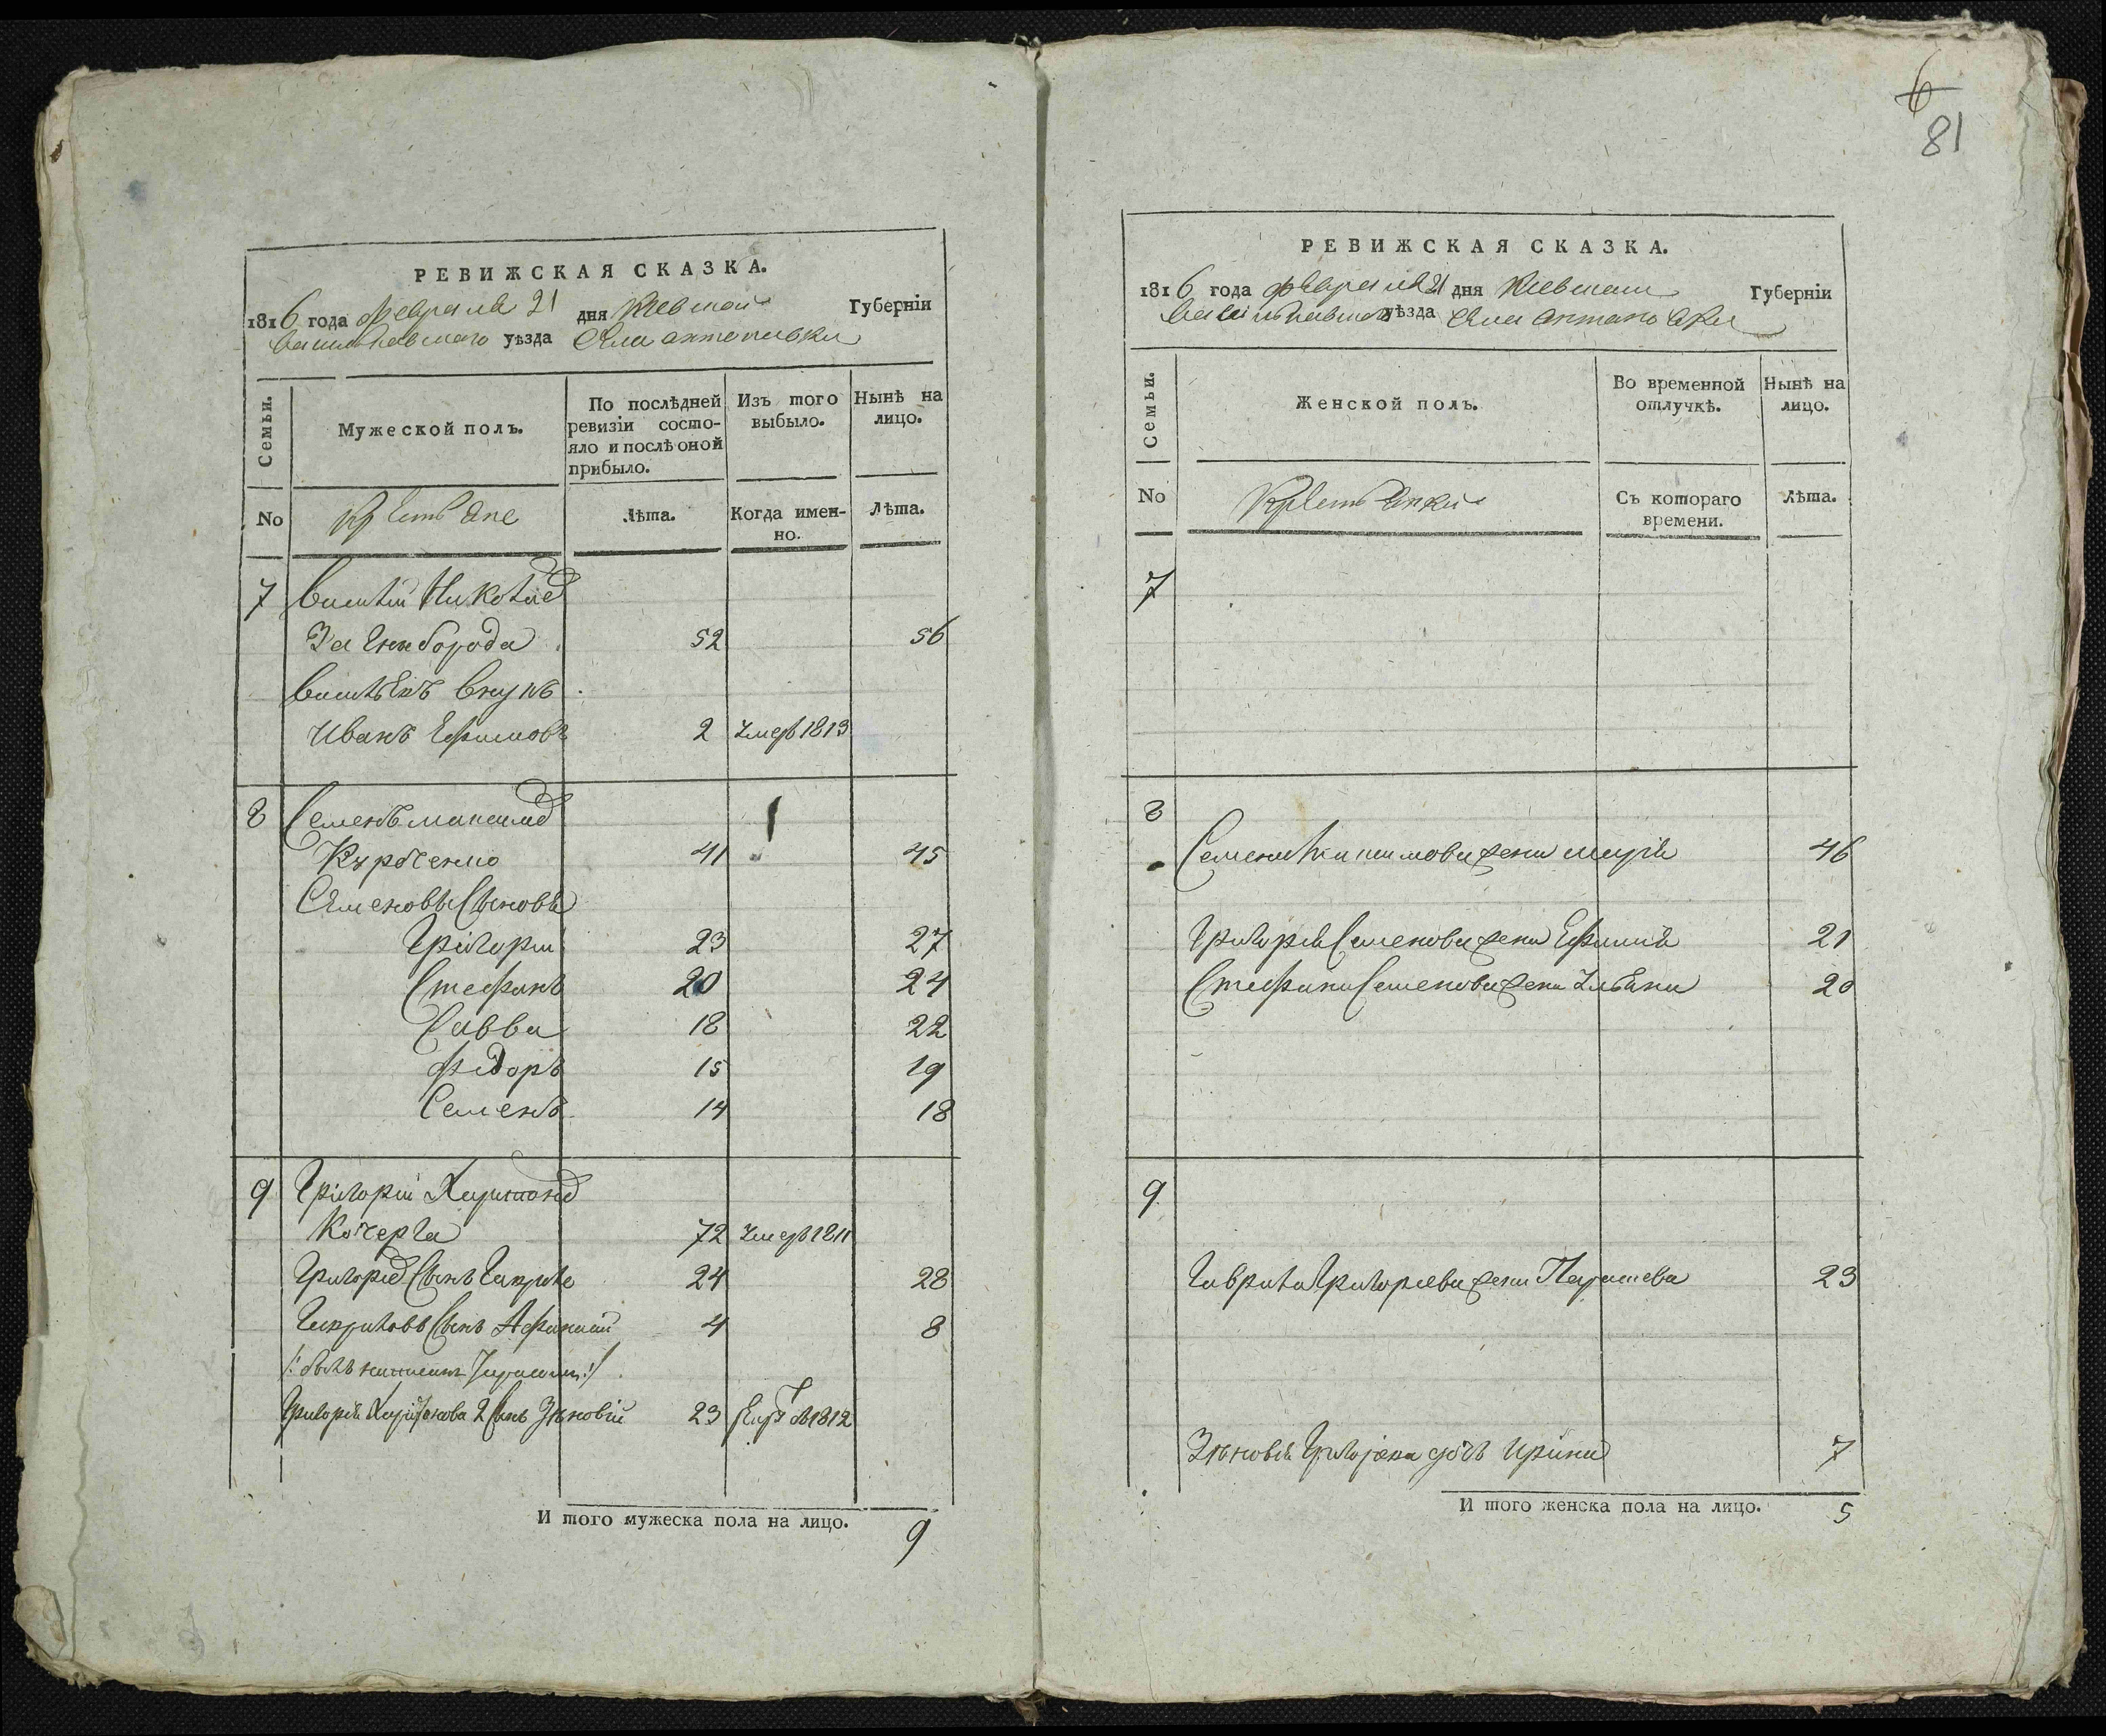 6
81
РЕВИЖСКАЯ СКАЗКА.
1816 года февраля 21 дня Киевской Губерніи
Васильковского уѣзда Села антоновки
Семьи.
Мужеской полъ.
По послѣдней ревизіи состо-
яло и послѣ оной
прибыло.
Изъ того
выбыло.
Нынѣ на
лицо.
No
Крестьяне
Лѣта.
Когда имен-
но.
Лѣта.
7 Василій
борода 52 56
Васильевъ Внукъ
Иванъ Ефимовъ 2 Умеръ 1813
8 Семенъ Максимовъ
Курченко 41 45
Семеновы Сыновья
Григорій 23 27
Стефанъ 20 24
Савва 18 22
Федоръ 15 19
Семенъ 14 18
9 Григорій Харитоновъ
Кочерга 72 Умеръ 1811
Григорьевъ Сынъ Гаврило 24 28
Гавриловъ Сынъ Афанасій 4 8
/: былъ написанъ :/
Григорія Харитонова 2 Сынъ Зѣновій 23 1812
И того мужеска пола на лицо. 9
РЕВИЖСКАЯ СКАЗКА.
1816 года февраля 21 дня Киевской Губерніи
Васильковского уѣзда Села антоновки
Семьи.
Женской полъ.
Во временной
отлучкѣ.
Нынѣ на
лицо.
No
Крестьянки
Съ котораго
времени.
Лѣта.
7
8
Семена Максимова жена марія 46
Григорія Семенова жена Ефимія 21
Стефана Семенова жена Ульяна 20
9
Гаврила Григорьева жена Параскева 23
Зѣновія дочь Ирина 7
И того женска пола на лицо. 5